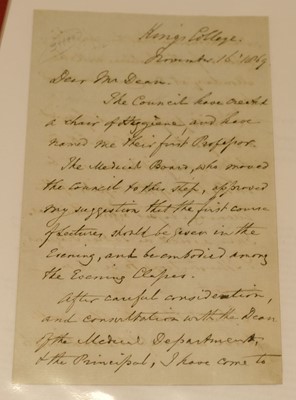 King's College,
November 16' 1869
Dear Mr Dean.
The Council have created
a chair of Hygiene and have
named me their first Professor.
The Medical Board, who moved
the Council to this step, approved
my suggestion that the first course
of Lectures should be given in the
Evening, and be embodied among
the Evening Classes.
After careful consideration,
and consultation with the Dean
of the Medical Department,
& the Principal, I have come to